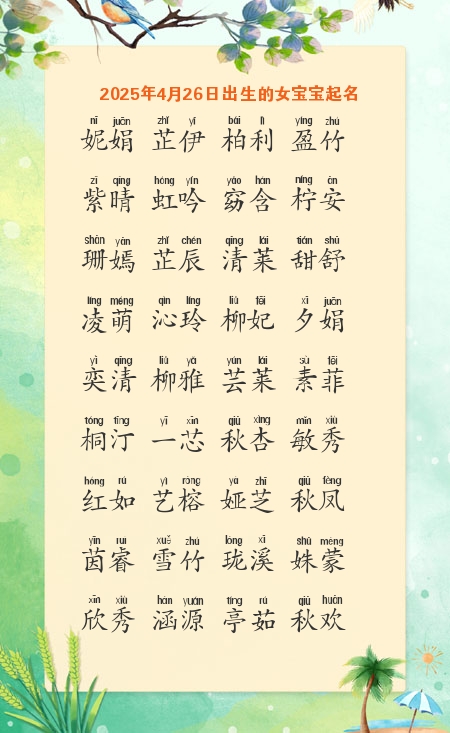 2025年4月26日出生的女宝宝起名
nī juān zhǐ yī bǎi lì yíng zhú
妮娟 芷伊 柏利 盈竹
zǐ qíng hóng yín yǎo hán níng ān
紫晴 虹吟 窈含 柠安
shān yān zhǐ chén qīng lái tián shū
珊嫣 芷辰 清莱 甜舒
líng méng qìn líng liǔ fēi xī juān
凌萌 沁玲 柳妃 夕娟
yì qīng liǔ yǎ yún lái sù fēi
奕清 柳雅 芸莱 素菲
tóng tīng yī xīn qiū xìng mǐn xiù
桐汀 一芯 秋杏 敏秀
hóng rú yì róng yà zhī qiū fèng
红如 艺榕 娅芝 秋凤
yīn ruì xuě zhú lóng xī shū méng
茵睿 雪竹 珑溪 姝蒙
xīn xiù hán yuán tíng rú qiū huān
欣秀 涵源 亭茹 秋欢